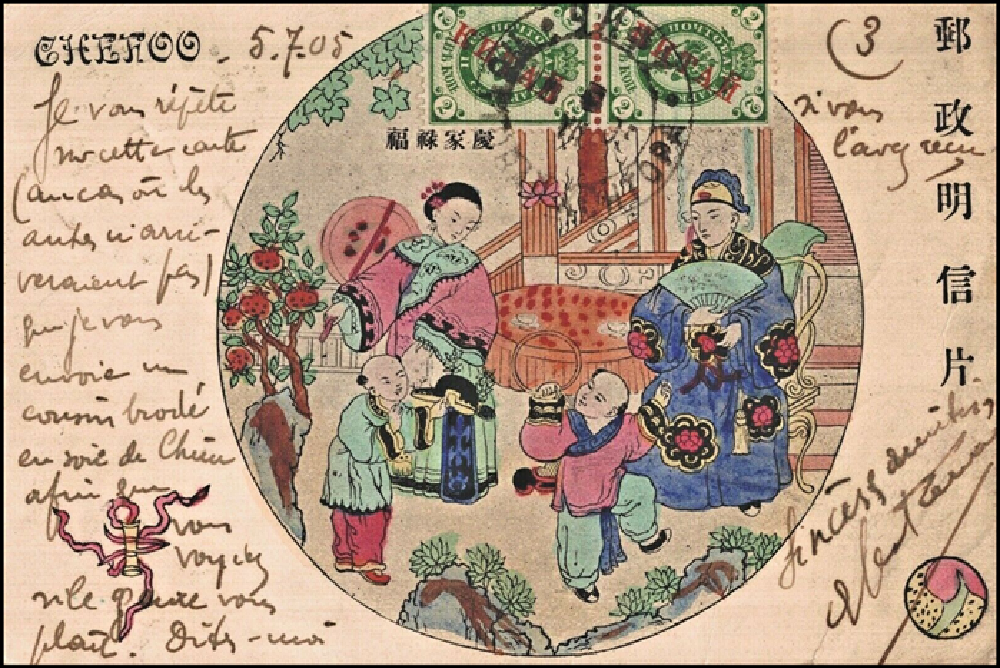 CHEFOO . 5.7.05
(3
Je vous répète
sur cette carte
(au cas où les
autres n'arri-
veraient pas)
que je vous
envoie un
coussin brodé
en soie de Chine
afin que
vous
voyiez
si le genre vous
plaît. Dites-moi
si vous
l'avez reçu
Sincères amitiés
福祿家慶
郵政明信片
КИТАЙ
КИТАЙ
2
2
2
2